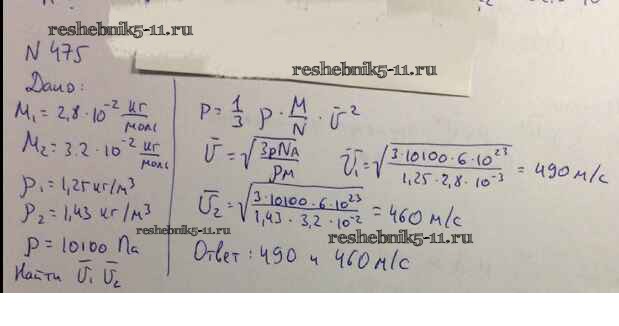 reshebnik5-11.ru
N 475
reshebnik5-11.ru
Дано:
M₁ = 2,8·10⁻² кг/моль
M₂ = 3.2·10⁻² кг/моль
ρ₁ = 1,25 кг/м³
ρ₂ = 1,43 кг/м³
p = 10100 Па
Найти v̄₁ v̄₂
P = 1/3 ρ · M/N · v̄²
v̄ = √(3pNa/ρM) v̄₁ = √(3·10100·6·10²³/1,25·2,8·10⁻³) = 490 м/с
v̄₂ = √(3·10100·6·10²³/1,43·3,2·10⁻²) = 460 м/с
reshebnik5-11.ru
reshebnik5-11.ru
Ответ: 490 и 460 м/с